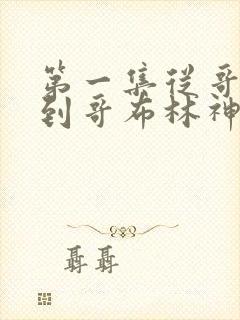 第一集从哥
到哥布林神
聶聶